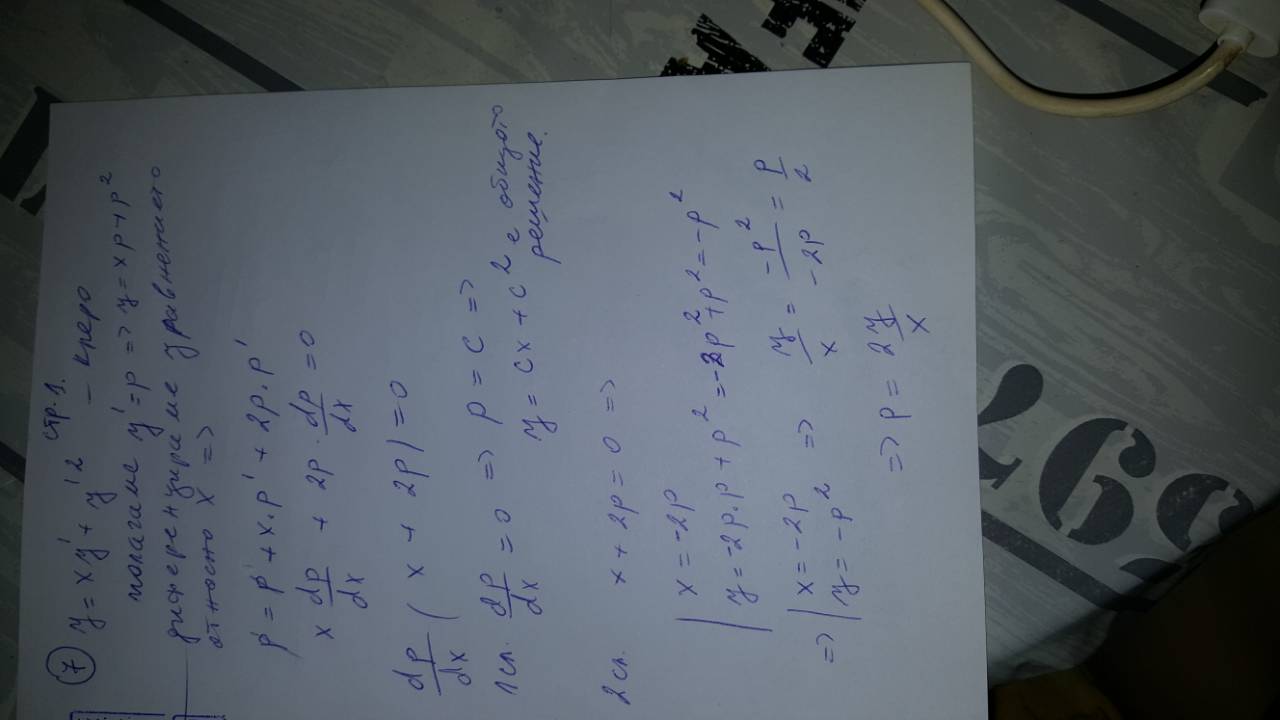 стр. 1.
7 y = xy' + y'² – Клеро
полагаме y' = p => y = xp + p²
диференцираме уравнението
относно x =>
p = p + x.p' + 2p.p'
x dp/dx + 2p . dp/dx = 0
dp/dx ( x + 2p ) = 0
1сл. dp/dx = 0 => p = c =>
y = cx + c² е общото
решение.
2 сл. x + 2p = 0 =>
| x = -2p
| y = -2p.p + p² = -2p² + p² = -p²
=> | x = -2p => y/x = -p²/-2p = p/2
| y = -p²
=> p = 2y/x
597